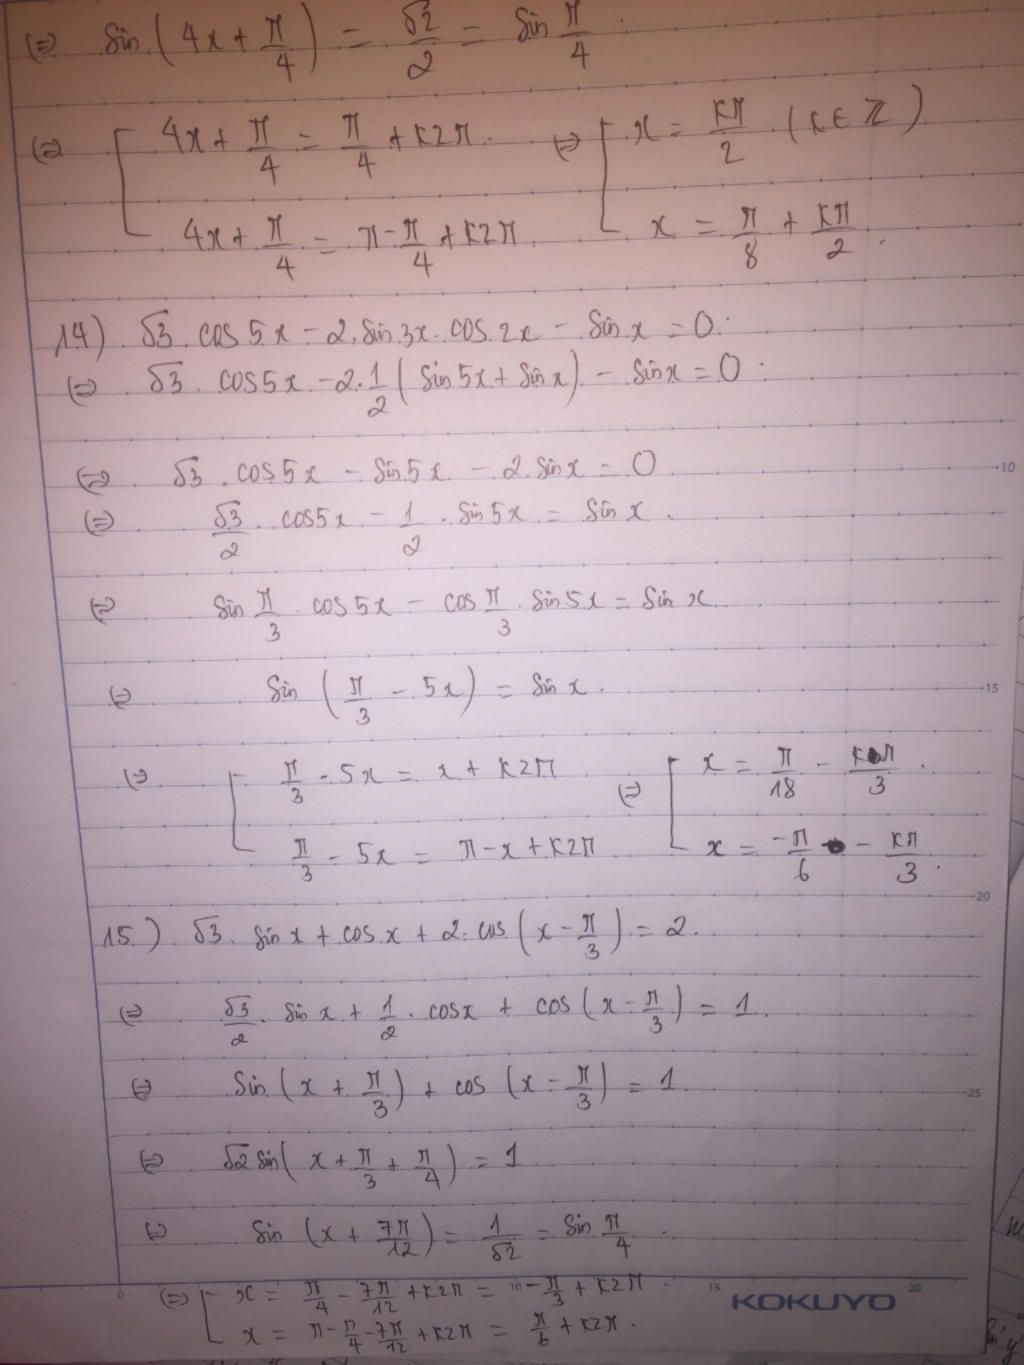 (=) sin(4x + π/4) = √2/2 = sin π/4.
(=) [ 4x + π/4 = π/4 + k2π. (=) [ x = kπ/2 (k ∈ Z)
4x + π/4 = π - π/4 + k2π. x = π/8 + kπ/2.
14) √3 . cos 5x - 2. sin 3x . cos 2x - sin x = 0.
(=) √3 . cos 5x - 2. 1/2 (sin 5x + sin x) - sin x = 0.
(=) √3 . cos 5x - sin 5x - 2. sin x = 0
(=) √3/2 . cos 5x - 1/2 . sin 5x = sin x.
(=) sin π/3 . cos 5x - cos π/3 . sin 5x = sin x.
(=) sin (π/3 - 5x) = sin x.
(=) [ π/3 - 5x = x + k2π (=) [ x = π/18 - kπ/3.
π/3 - 5x = π - x + k2π x = -π/6 - kπ/3.
15.) √3. sin x + cos x + 2. cos (x - π/3) = 2.
(=) √3/2 . sin x + 1/2 . cos x + cos (x - π/3) = 1.
(=) sin (x + π/3) + cos (x - π/3) = 1.
(=) √2 sin(x + π/3 + π/4) = 1
(=) sin (x + 7π/12) = 1/√2 = sin π/4.
(=) [ x = π/4 - 7π/12 + k2π = -π/3 + k2π.
x = π - π/4 - 7π/12 + k2π = π/6 + k2π.
10
15
20
25
0 10 15 20
KOKUYO